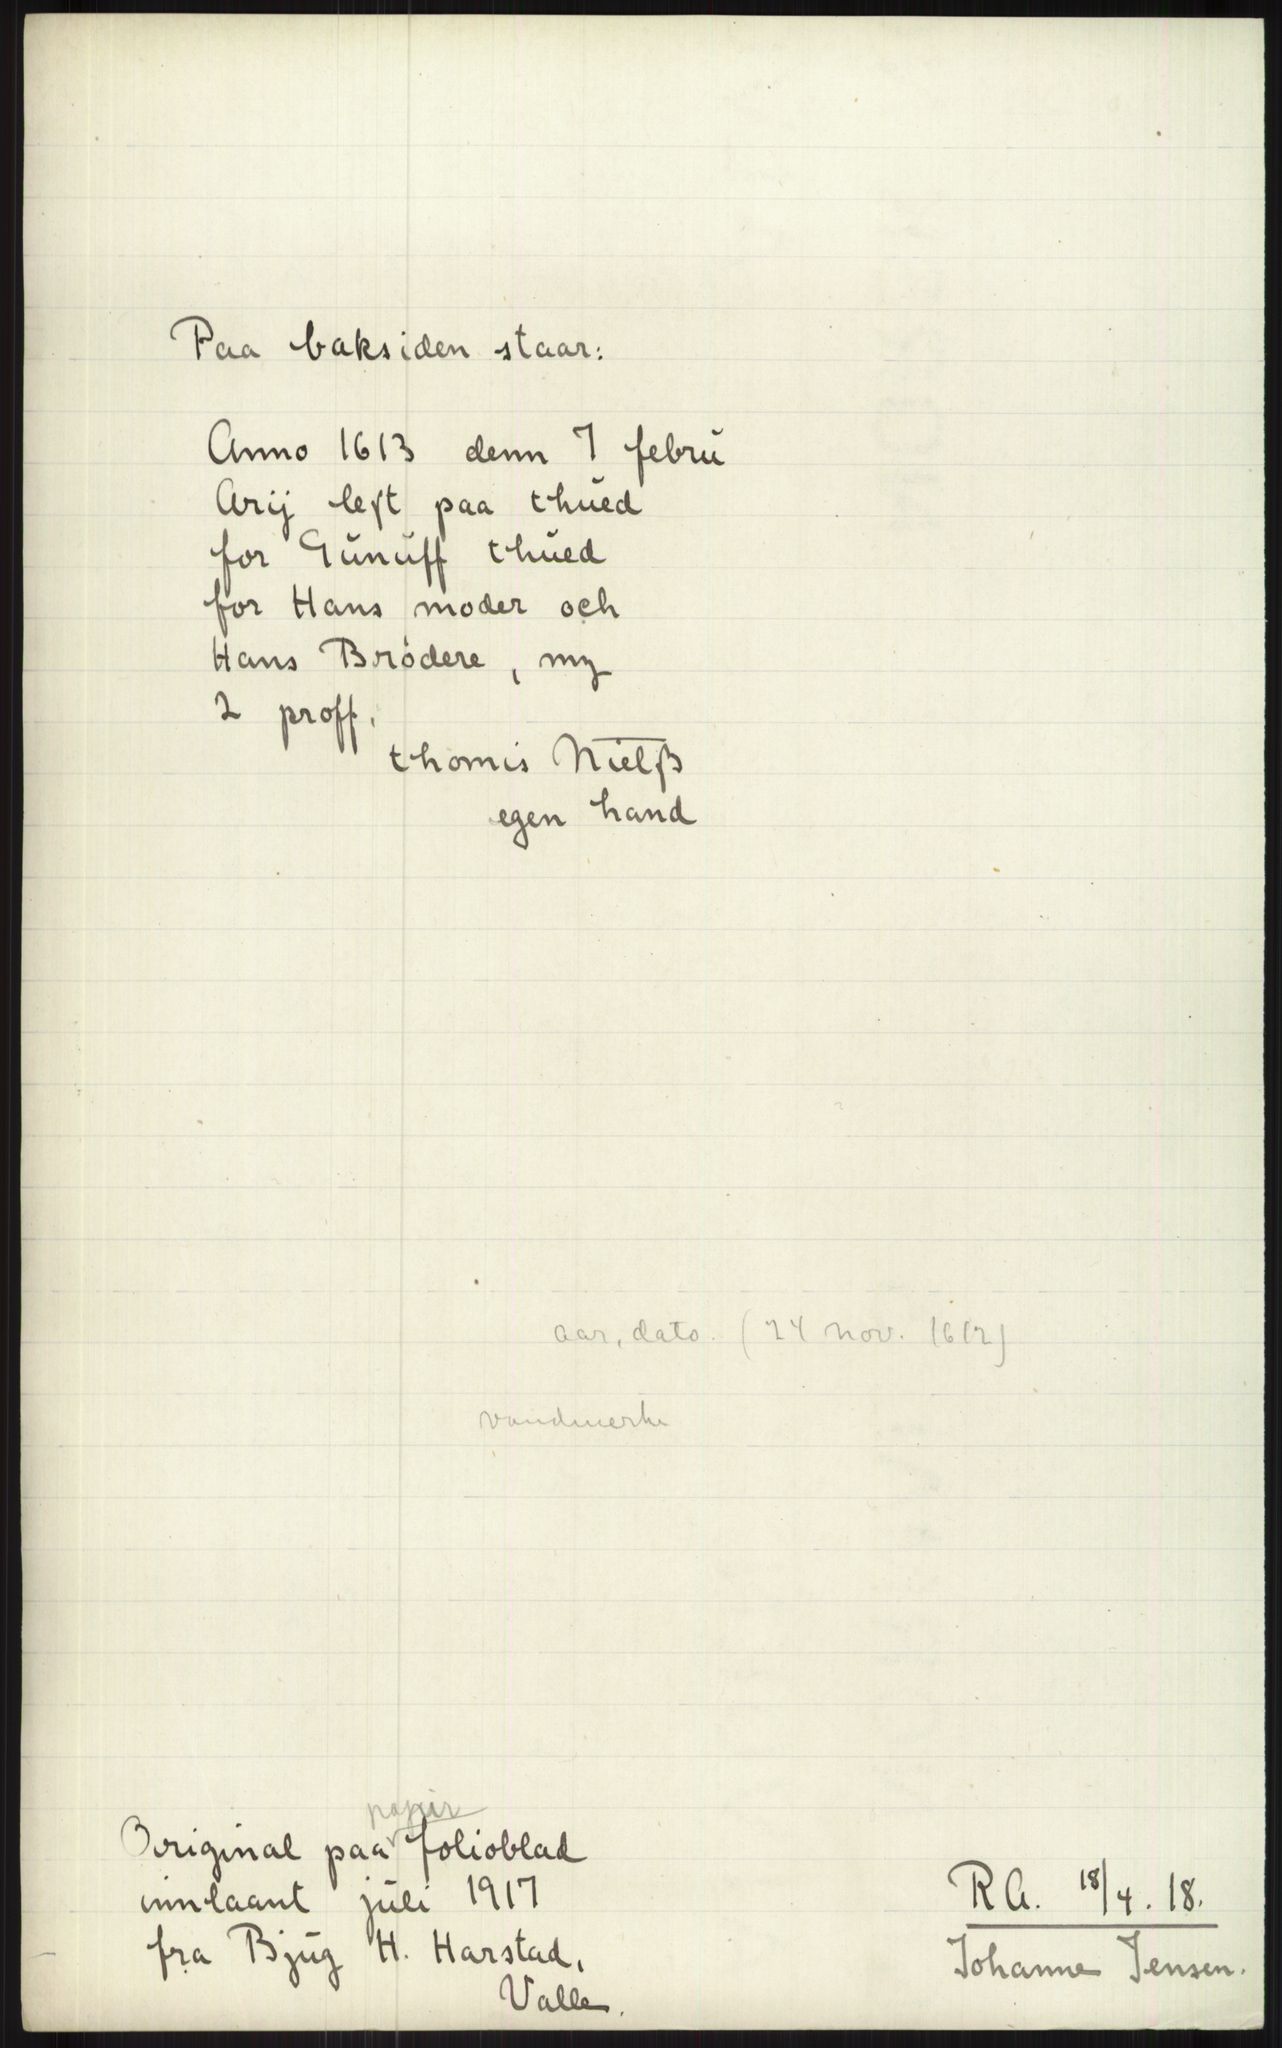 Paa baksiden staar:
Anno 1613 denn 7 febrü
Arij lest paa thüed
for Günüff thüed
for Hans moder och
Hans Brödere, mz
2 proff.
thomis Nielß
egen hand
aar, dato. (24 nov. 1612)
vandmerke
papir
Original paa folioblad
innlaant jüli 1917
fra Bjüg H. Harstad,
Valle.
R A. 18/4. 18.
Johanne Jensen.